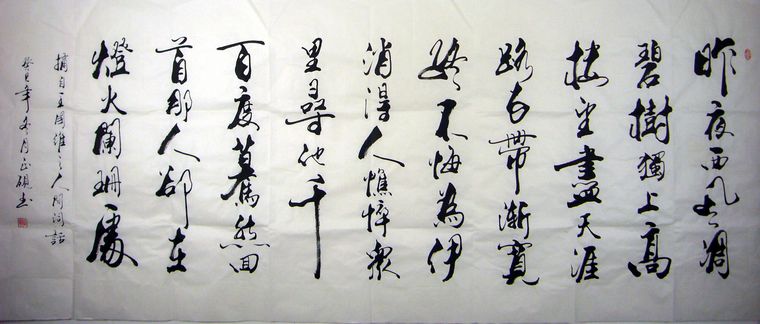 昨夜西風凋
碧樹獨上高
樓望盡天涯
路衣帶漸寬
終不悔為伊
消得人憔悴眾
里尋他千
百度驀然回
首那人卻在
燈火闌珊處
摘自王國維之人間詞話
癸巳年冬月正硯书